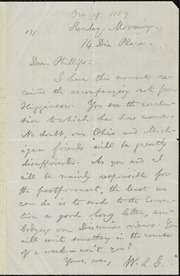 Oct. 18, 1857
Sunday Morning
14 Dix Place.
Dear Phillips:
I have this moment re-
ceived the accompanying note from
Higginson. You see the conclu-
sion to which he has come.
No doubt, our Ohio and Mich-
igan friends will be greatly
disappointed. As you and I
will be mainly responsible for
the postponement, the best we
can do is to send to the Conven-
tion a good long letter, em-
bodying our Disunion views. You
will write something in the course
of a week – won't you?
Yours, ever,
W. L. G.